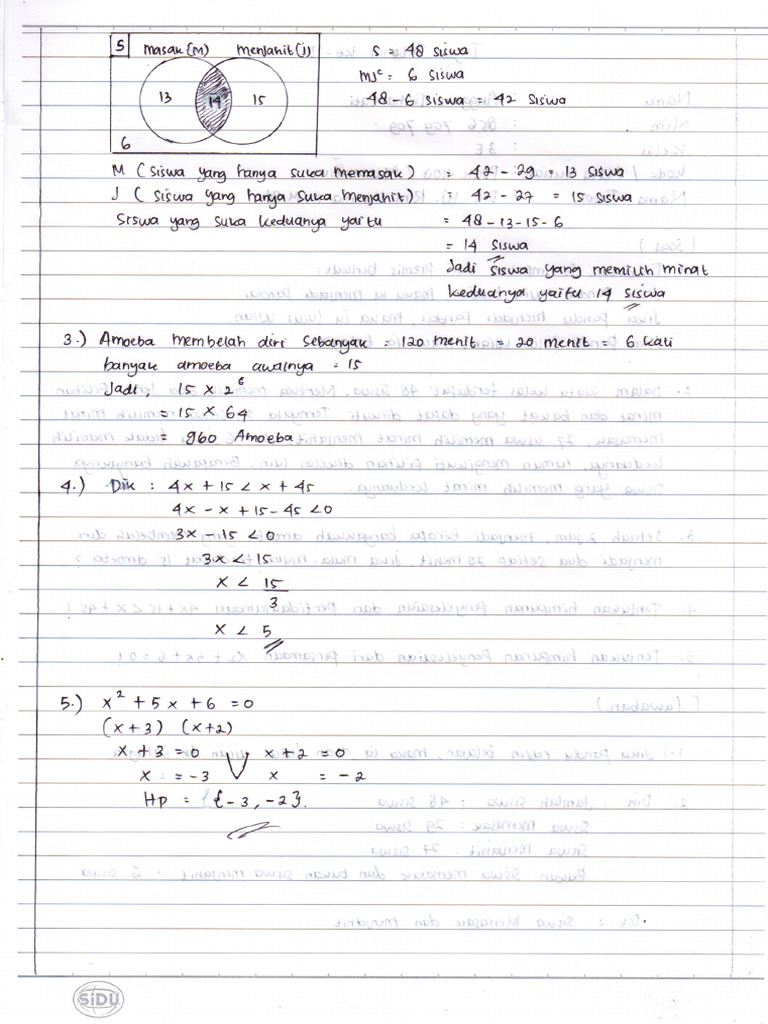 S Masak (M) Menjahit (J) S = 48 siswa
MJᶜ = 6 siswa
13 14 15 48 - 6 siswa = 42 siswa
6
M ( siswa yang hanya suka memasak) = 42 - 29 = 13 siswa
J ( siswa yang hanya suka menjahit) = 42 - 27 = 15 siswa
Siswa yang suka keduanya yaitu = 48-13-15-6
= 14 siswa
Jadi siswa yang memilih minat
keduanya yaitu 14 siswa
3.) Amoeba membelah diri sebanyak = 120 menit = 20 menit = 6 kali
banyak amoeba awalnya = 15
Jadi, 15 x 2⁶
= 15 x 64
= 960 Amoeba
4.) Dik : 4x + 15 < x + 45
4x - x + 15 - 45 < 0
3x - 15 < 0
3x < 15
x < 15
3
x < 5
5.) x² + 5x + 6 = 0
(x+3) (x+2)
x + 3 = 0 V x + 2 = 0
x = -3 x = -2
Hp = {-3, -2}.
SiDU